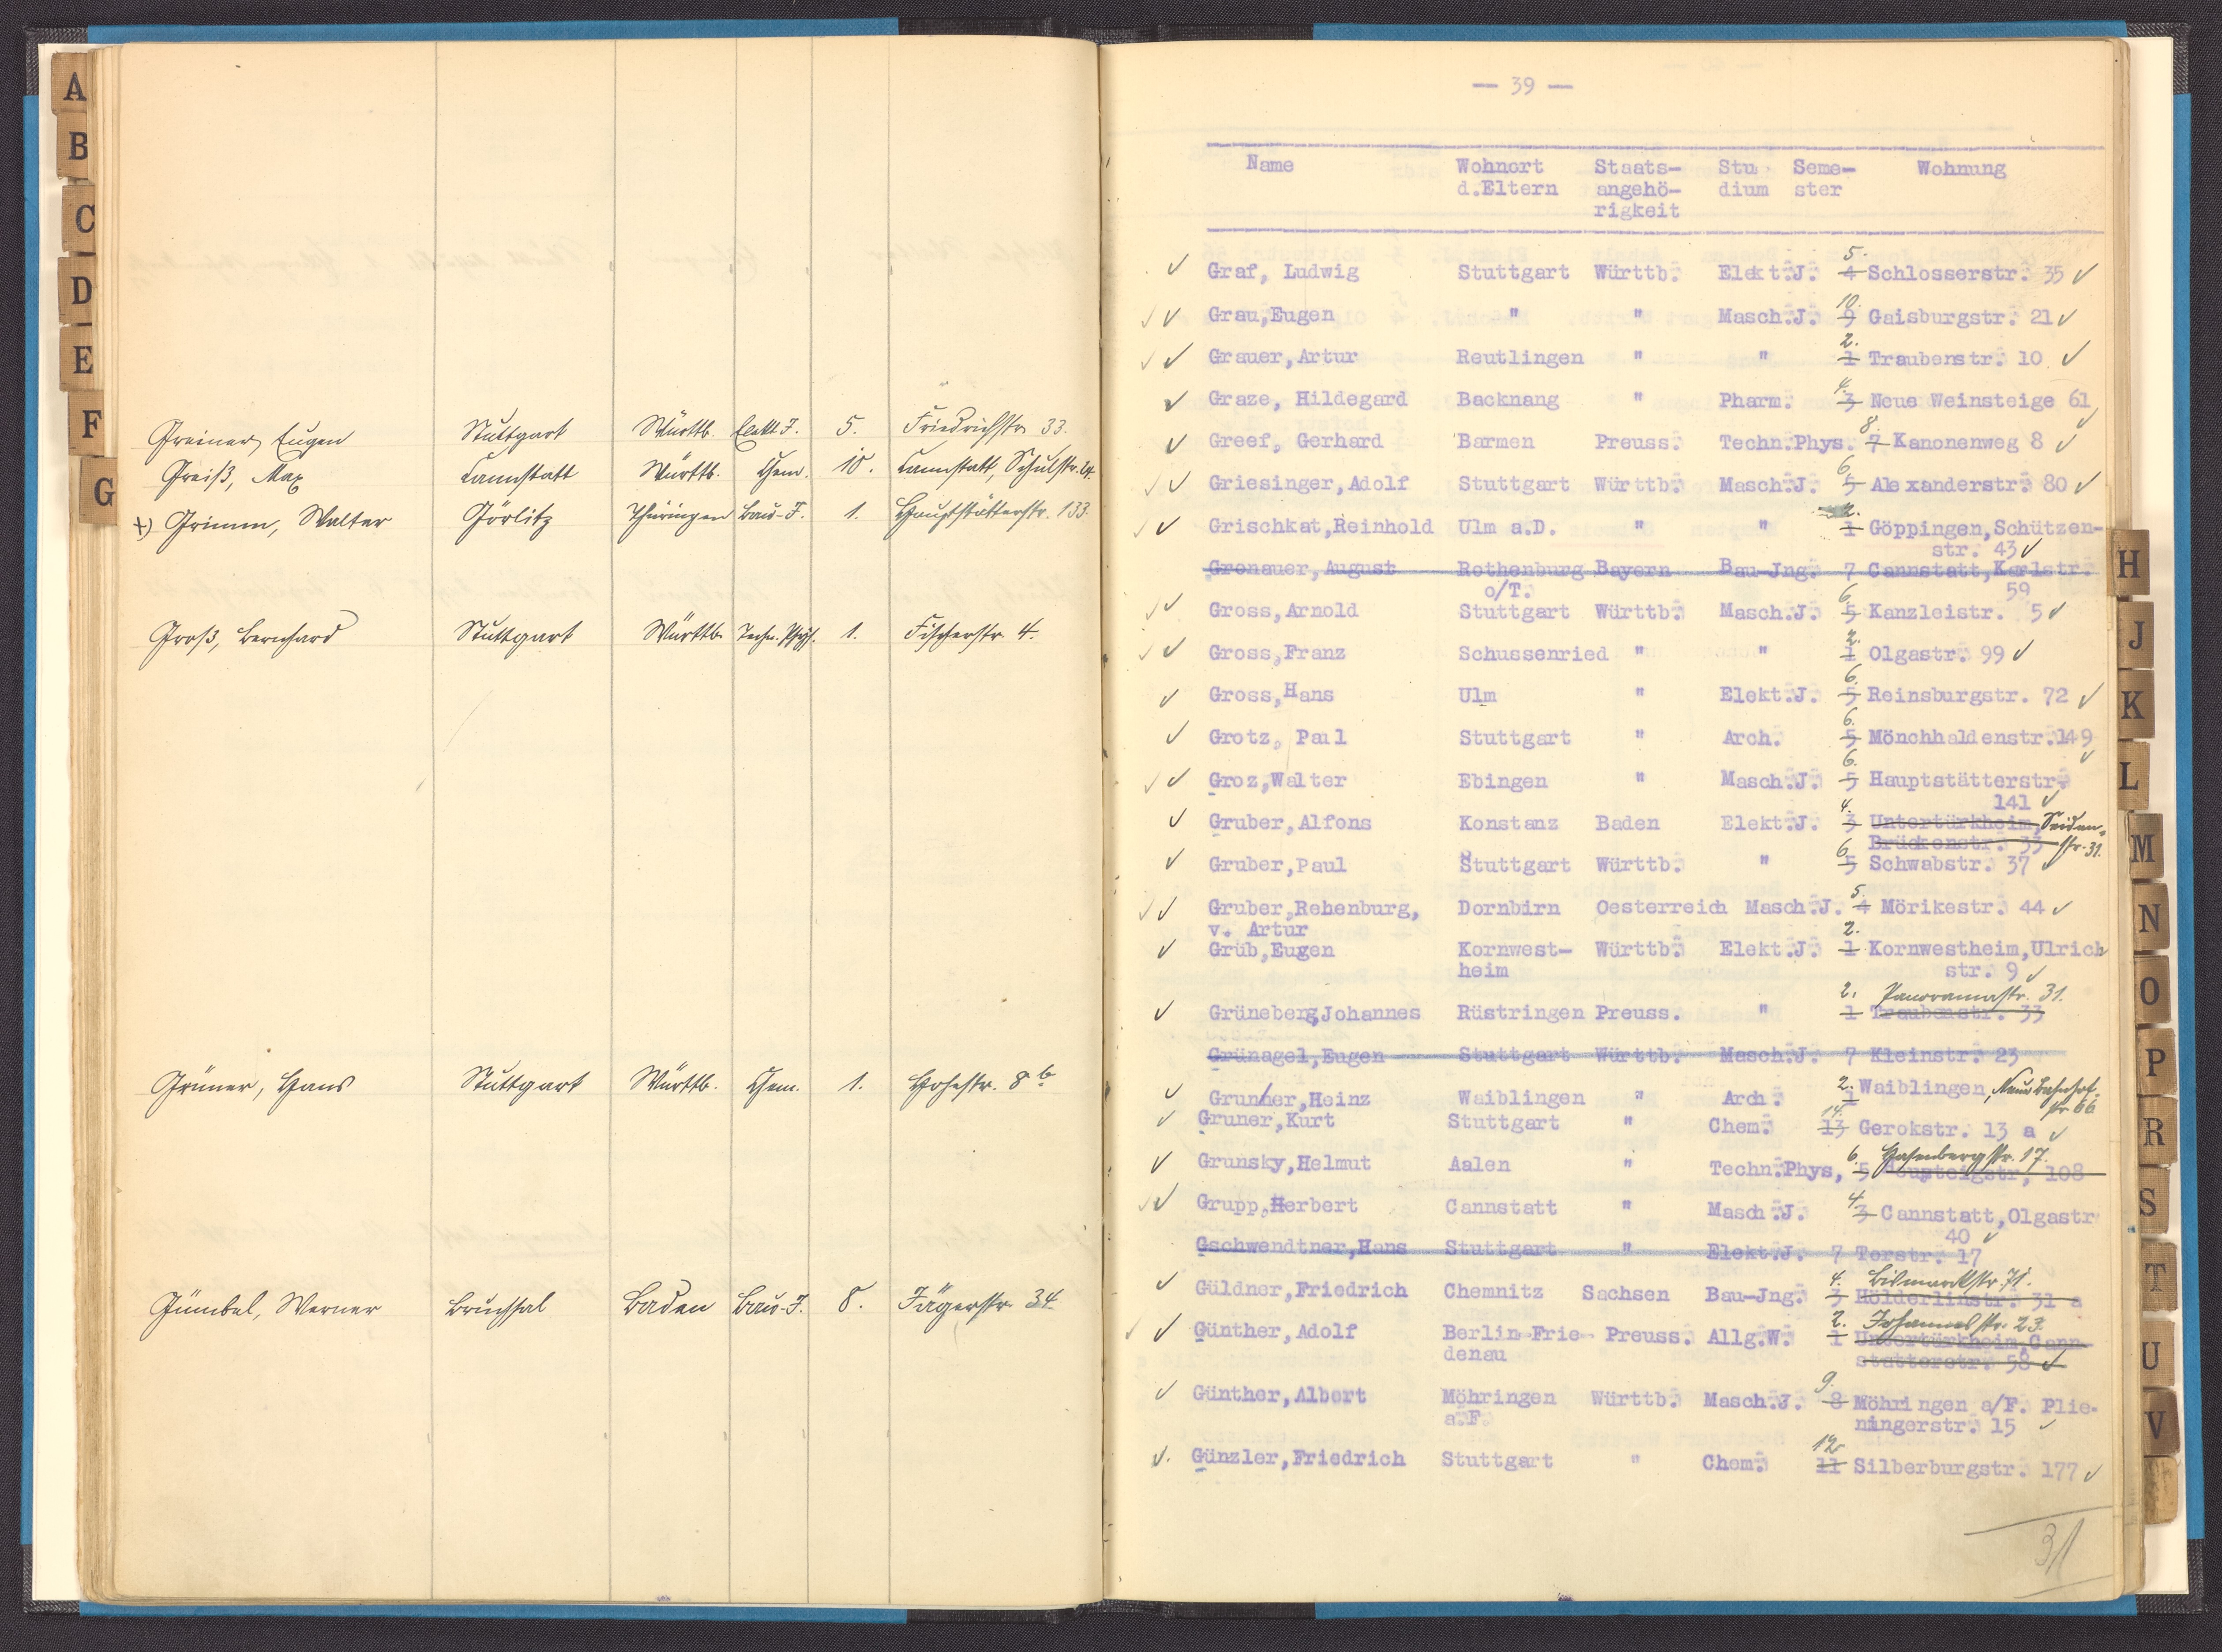 A
B
C
D
E
F
G
Greiner, Eugen Stuttgart Württb. Elekt. J. 5. Friedrichstr. 33.
Greiß, Max Cannstatt Württb. Chem. 10. Cannstatt, Schulstr. 24.
+) Grimm, Walter Görlitz Thüringen Bau-J. 1. Hauptstätterstr. 133.
Groß, Bernhard Stuttgart Württb. Techn. Phys. 1. Fischerstr. 4.
Grüner, Hans Stuttgart Württb. Chem. 1. Hohestr. 8 b
Gümbel, Werner Bruchsal Baden Bau-J. 8. Jägerstr. 34
— 39 —
Name Wohnort Staats- Stu Seme- Wohnung
d.Eltern angehö- dium ster
rigkeit
✓ Graf, Ludwig Stuttgart Württb. Elekt.J. 4 5. Schlosserstr. 35 ✓
✓✓ Grau,Eugen " " Masch.J. 9 10. Gaisburgstr. 21 ✓
✓✓ Grauer,Artur Reutlingen " " 1 2. Traubenstr. 10 ✓
✓ Graze, Hildegard Backnang " Pharm. 3 4. Neue Weinsteige 61 ✓
✓ Greef, Gerhard Barmen Preuss. Techn.Phys. 7 8. Kanonenweg 8 ✓
✓✓ Griesinger,Adolf Stuttgart Württb. Masch.J. 5 6. Alexanderstr. 80 ✓
✓✓ Grischkat,Reinhold Ulm a.D. " " 1 2. Göppingen,Schützen-
str. 43 ✓
Gronauer,August Rothenburg Bayern Bau-Jng. 7 Cannstatt,Karlstr.
o/T. 59
✓✓ Gross,Arnold Stuttgart Württb. Masch.J. 5 6. Kanzleistr. 5 ✓
✓✓ Gross,Franz Schussenried " " 1 2. Olgastr. 99 ✓
✓ Gross,Hans Ulm " Elekt.J. 5 6. Reinsburgstr. 72 ✓
✓ Grotz, Paul Stuttgart " Arch. 5 6. Mönchhaldenstr.149 ✓
✓✓ Groz,Walter Ebingen " Masch.J. 5 6. Hauptstätterstr.
141 ✓
✓ Gruber,Alfons Konstanz Baden Elekt.J. 3 4. Untertürkheim, Seiden-
Brückenstr. 33 str. 31.
✓ Gruber,Paul Stuttgart Württb. " 5 6. Schwabstr. 37 ✓
✓✓ Gruber,Rehenburg, Dornbirn Oesterreich Masch.J. 4 5. Mörikestr. 44 ✓
v. Artur
✓ Grüb,Eugen Kornwest- Württb. Elekt.J. 1 2. Kornwestheim,Ulrich
heim str. 9 ✓
Panoramastr. 31.
✓ Grüneberg,Johannes Rüstringen Preuss. " 1 2. Traubenstr. 33
Grünagel,Eugen Stuttgart Württb. Masch.J. 7 Kleinstr. 23
✓ Grunner,Heinz Waiblingen " Arch. 1 2. Waiblingen, Neue Bahnhof-
str. 66
✓ Gruner,Kurt Stuttgart " Chem. 13 14. Gerokstr. 13 a ✓
Hasenbergstr. 17.
✓ Grunsky,Helmut Aalen " Techn.Phys, 5 6. 108
✓✓ Grupp,Herbert Cannstatt " Masch.J. 3 4. Cannstatt,Olgastr
40 ✓
Gschwendtner,Hans Stuttgart " Elekt.J. 7 Torstr. 17
Bismarckstr. 71.
✓ Güldner,Friedrich Chemnitz Sachsen Bau-Jng. 3 4. Hölderlinstr. 31 a
Johannesstr. 23.
✓✓ Günther,Adolf Berlin-Frie- Preuss. Allg.W. 1 2. Untertürkheim,Cann-
denau statterstr. 58 ✓
✓ Günther,Albert Möhringen Württb. Masch.J. 8 9. Möhringen a/F. Plie-
a.F. ningerstr. 15 ✓
✓. Günzler,Friedrich Stuttgart " Chem. 11 12. Silberburgstr. 177 ✓
31
H
J
K
L
M
N
O
P
R
S
T
U
V